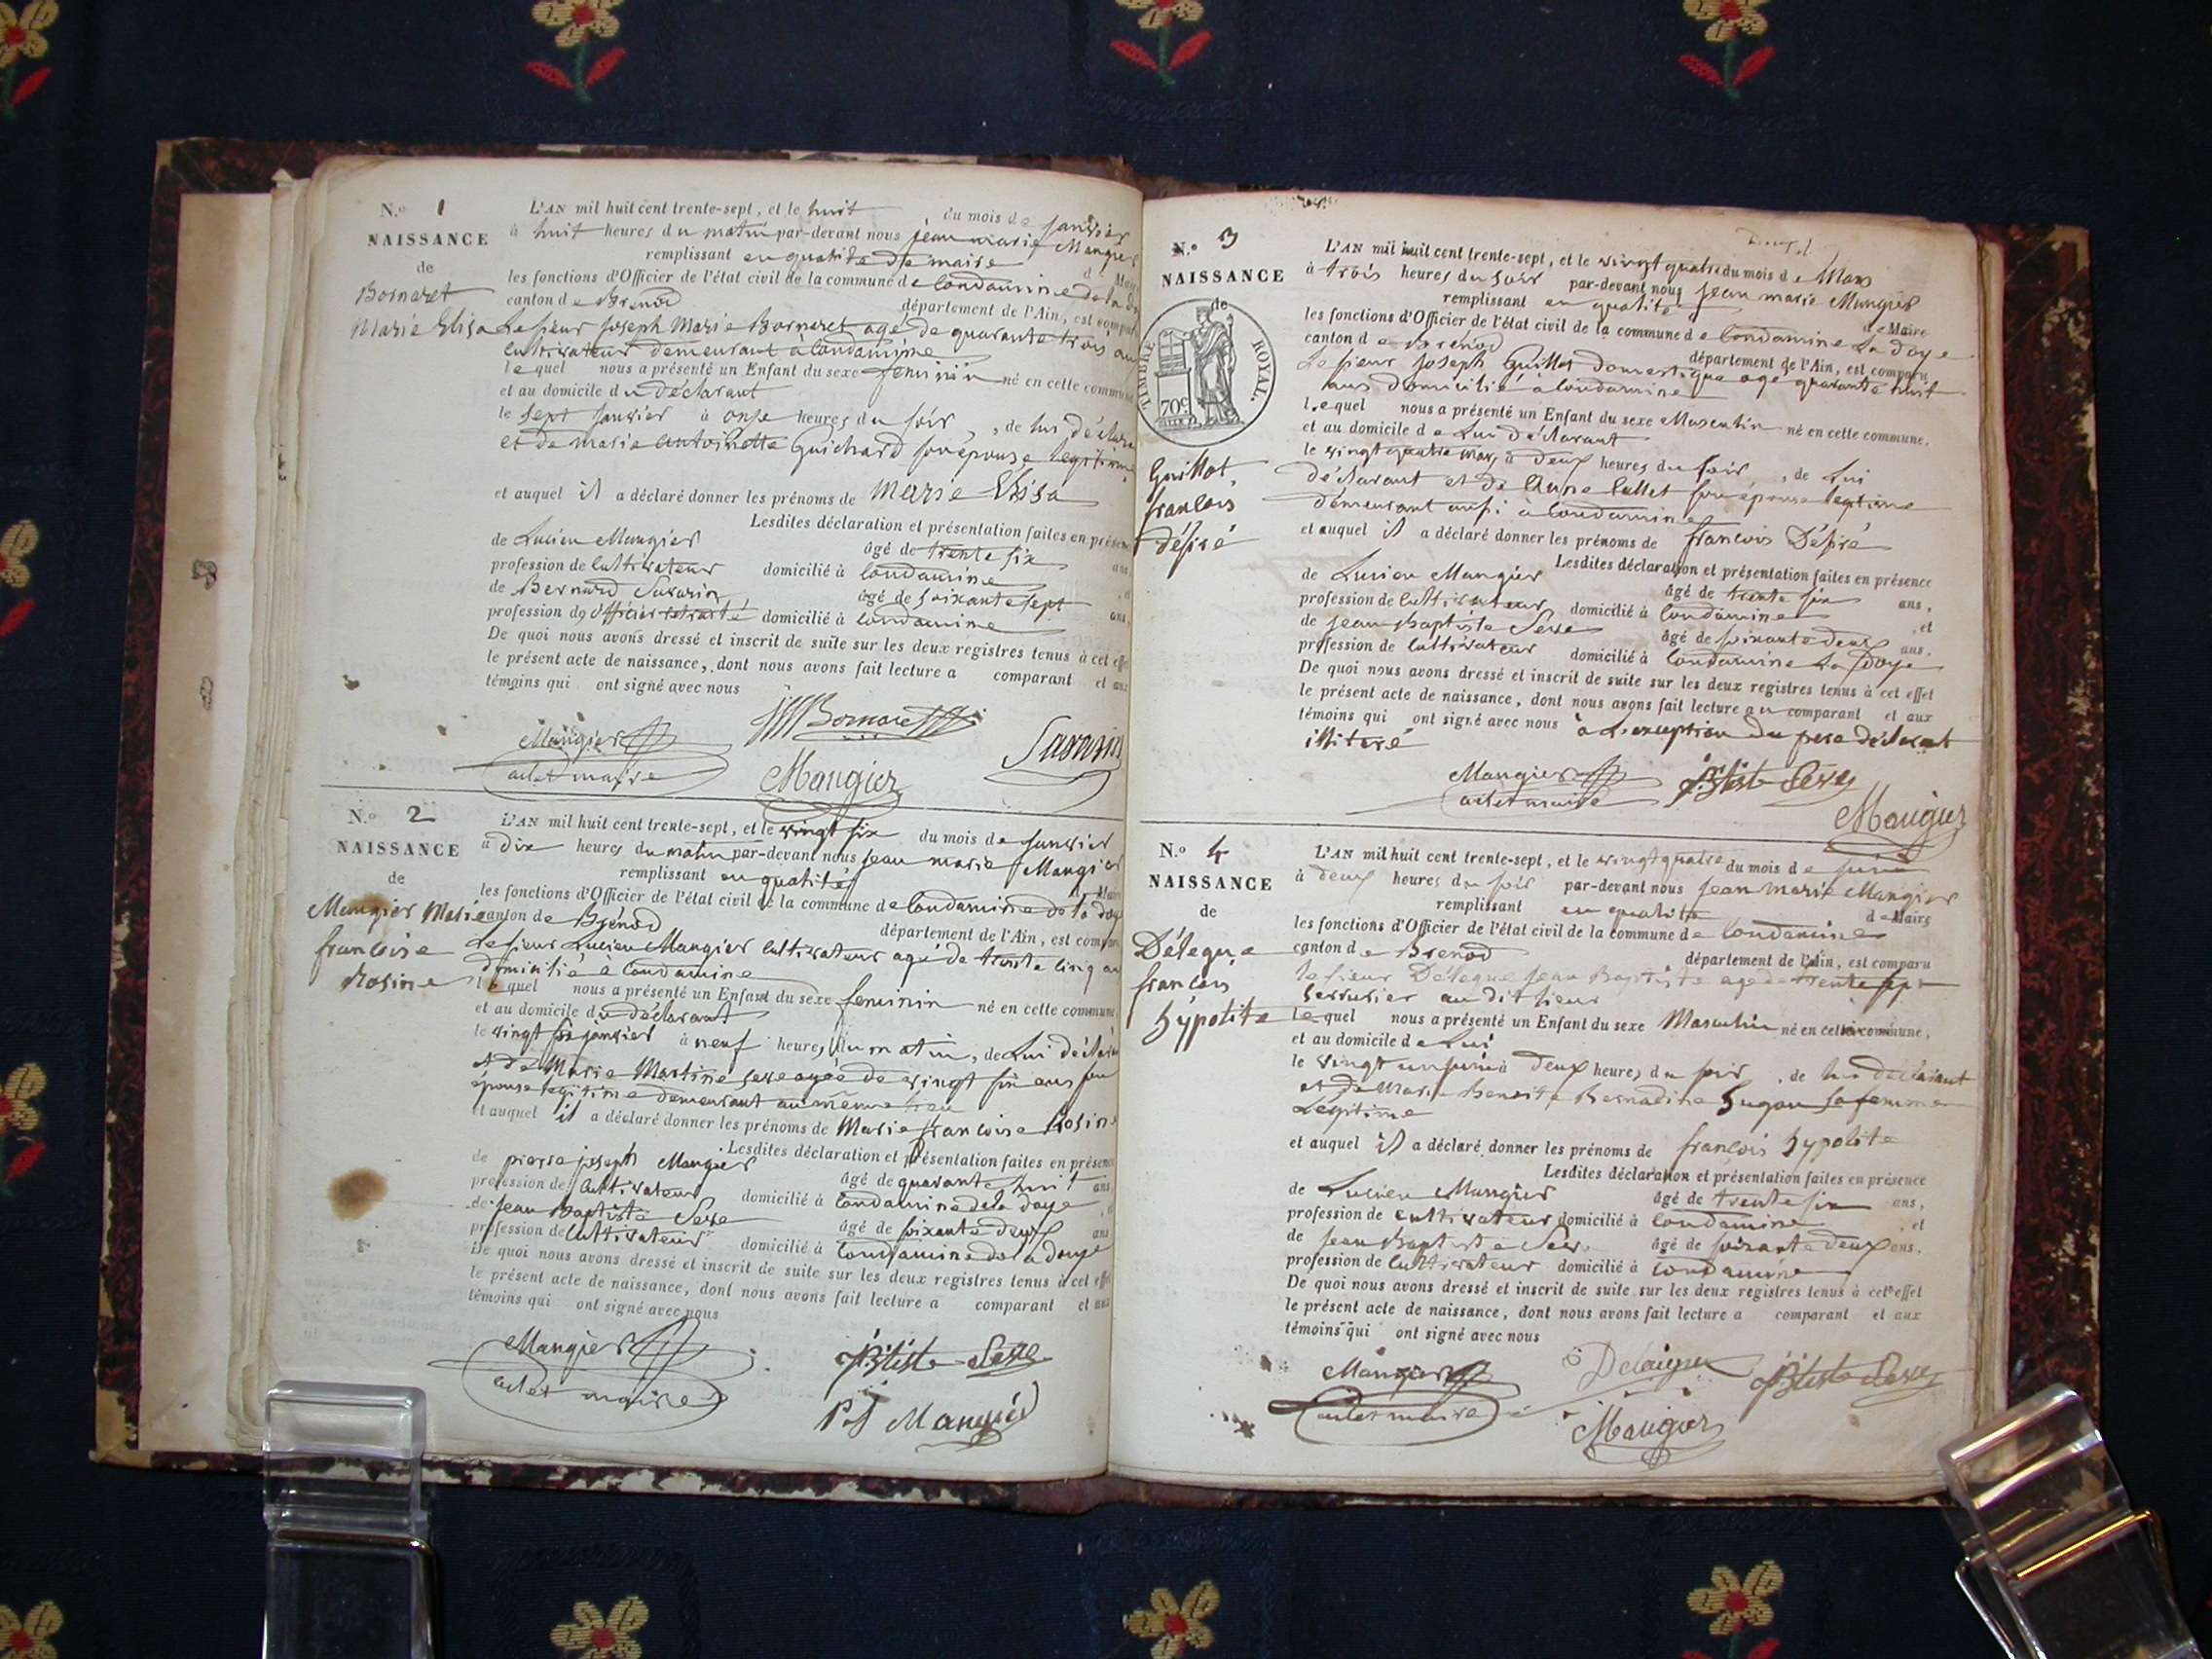 N.º 1
NAISSANCE
de
Bornaret
Marie Elisa
L'AN mil huit cent trente-sept, et le huit du mois de janvier
à huit heures du matin par-devant nous jean marie Mangier
remplissant en qualité de maire
les fonctions d'Officier de l'état civil de la commune de Condamine de la
canton de Brenod département de l'Ain, est
Le sieur joseph Marie Bornaret agé de quarante trois
cultivateur demeurant à Condamine
lequel nous a présenté un Enfant du sexe feminin né en cette
et au domicile du déclarant
le sept janvier à onze heures du soir, de lui
et de marie antoinette Guichard son épouse legitime
et auquel il a déclaré donner les prénoms de Marie Elisa
Lesdites déclaration et présentation faites en
de Lucien Mangier âgé de trente six ans
profession de cultivateur domicilié à Condamine
de Bernard Savarin âgé de soixante sept ans
profession d'officier retraité domicilié à Condamine
De quoi nous avons dressé et inscrit de suite sur les deux registres tenus à cet
le présent acte de naissance, dont nous avons fait lecture a comparant et aux
témoins qui ont signé avec nous
Mangier
maire
Bornaret
Mangier
Savarin
N.º 2
NAISSANCE
de
Mangier Marie
francoise
Rosine
L'AN mil huit cent trente-sept, et le vingt six du mois de janvier
à dix heures du matin par-devant nous jean marie Mangier
remplissant en qualité
les fonctions d'Officier de l'état civil de la commune de Condamine de la doye
canton de Brénod département de l'Ain, est
Le sieur Lucien Mangier cultivateur agé de trente cinq
domicilié à Condamine
lequel nous a présenté un Enfant du sexe feminin né en cette commune
et au domicile du déclarant
le vingt six janvier à neuf heures du matin, de Lui
et de Marie Martine Serre agée de vingt six ans
épouse legitime demeurant au même lieu
et auquel il a déclaré donner les prénoms de Marie francoise Rosine
Lesdites déclaration et présentation faites en
de pierre joseph Mangier âgé de quarante huit ans
profession de cultivateur domicilié à Condamine de la doye
de jean Baptiste Serre âgé de soixante deux ans
profession de cultivateur domicilié à Condamine de la doye
De quoi nous avons dressé et inscrit de suite sur les deux registres tenus à cet
le présent acte de naissance, dont nous avons fait lecture a comparant et aux
témoins qui ont signé avec nous
Mangier
maire
Serre
PJ Mangier
N.º 3
NAISSANCE
de
TIMBRE ROYAL.
70c
Guillot
francois
désiré
L'AN mil huit cent trente-sept, et le vingt quatre du mois de Mars
à trois heures du soir par-devant nous jean marie Mangier
remplissant en qualité de Maire
les fonctions d'Officier de l'état civil de la commune de Condamine La doye
canton de Brenod département de l'Ain, est comparu
Le sieur joseph Guillot domestique agé quarante huit
ans domicilié à Condamine
lequel nous a présenté un Enfant du sexe Masculin né en cette commune,
et au domicile de Lui déclarant
le vingt quatre mars à deux heures du soir, de Lui
déclarant et de Anne son épouse legitime
demeurant aussi à Condamine
et auquel il a déclaré donner les prénoms de francois Désiré
Lesdites déclaration et présentation faites en présence
de Lucien Mangier âgé de trente six ans,
profession de cultivateur domicilié à Condamine, et
de jean Baptiste Serre âgé de soixante deux ans,
profession de cultivateur domicilié à Condamine La doye
De quoi nous avons dressé et inscrit de suite sur les deux registres tenus à cet effet
le présent acte de naissance, dont nous avons fait lecture au comparant et aux
témoins qui ont signé avec nous à L'exception du pere déclarant
illiteré
Mangier
maire
Serre
Mangier
N.º 4
NAISSANCE
de
Délegue
françois
hypolite
L'AN mil huit cent trente-sept, et le vingt quatre du mois de juin
à deux heures du soir par-devant nous jean marie Mangier
remplissant en qualité de Maire
les fonctions d'Officier de l'état civil de la commune de Condamine
canton de Brenod département de l'Ain, est comparu
le sieur Délegue jean Baptiste agé de trente sept
serrurier au dit lieu
lequel nous a présenté un Enfant du sexe Masculin né en cette commune,
et au domicile de Lui
le vingt un juin à deux heures du soir, de lui déclarant
et de Marie Benoite Bernadine hugon sa femme
Legitime
et auquel il a déclaré donner les prénoms de françois hypolite
Lesdites déclaration et présentation faites en présence
de Lucien Mangier âgé de trente six ans,
profession de cultivateur domicilié à Condamine, et
de jean Baptiste Serre âgé de soixante deux ans,
profession de cultivateur domicilié à Condamine
De quoi nous avons dressé et inscrit de suite sur les deux registres tenus à cet effet
le présent acte de naissance, dont nous avons fait lecture a comparant et aux
témoins qui ont signé avec nous
Mangier
maire
Delaigue
Serre
Mangier